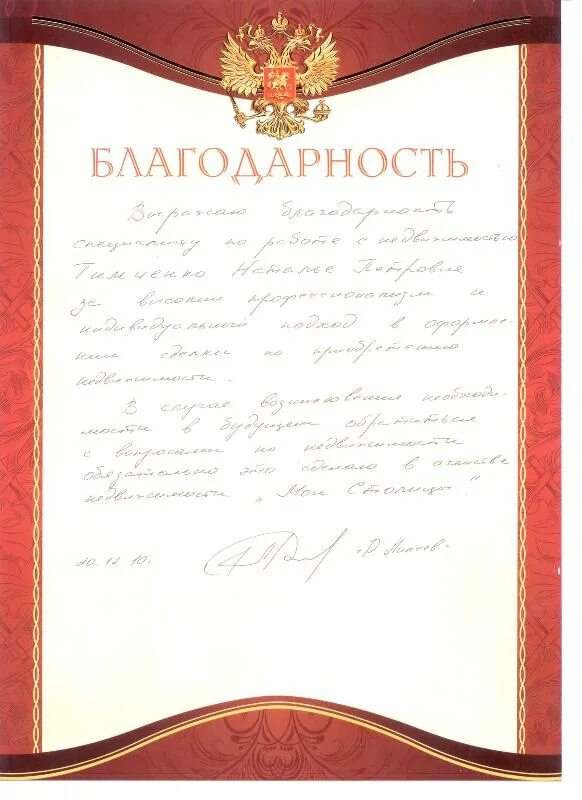 БЛАГОДАРНОСТЬ
Выражаю благодарность
специалисту по работе с недвижимостью
Тимченко Наталье Петровне
за высокий профессионализм и
индивидуальный подход в оформле-
нии сделки по приобретению
недвижимости.
В случае возникновения необходи-
мости в будущем обратиться
с вопросами по недвижимости
обязательно это сделаю в агенстве
недвижимости „Мои Столицы".
20.12.10.